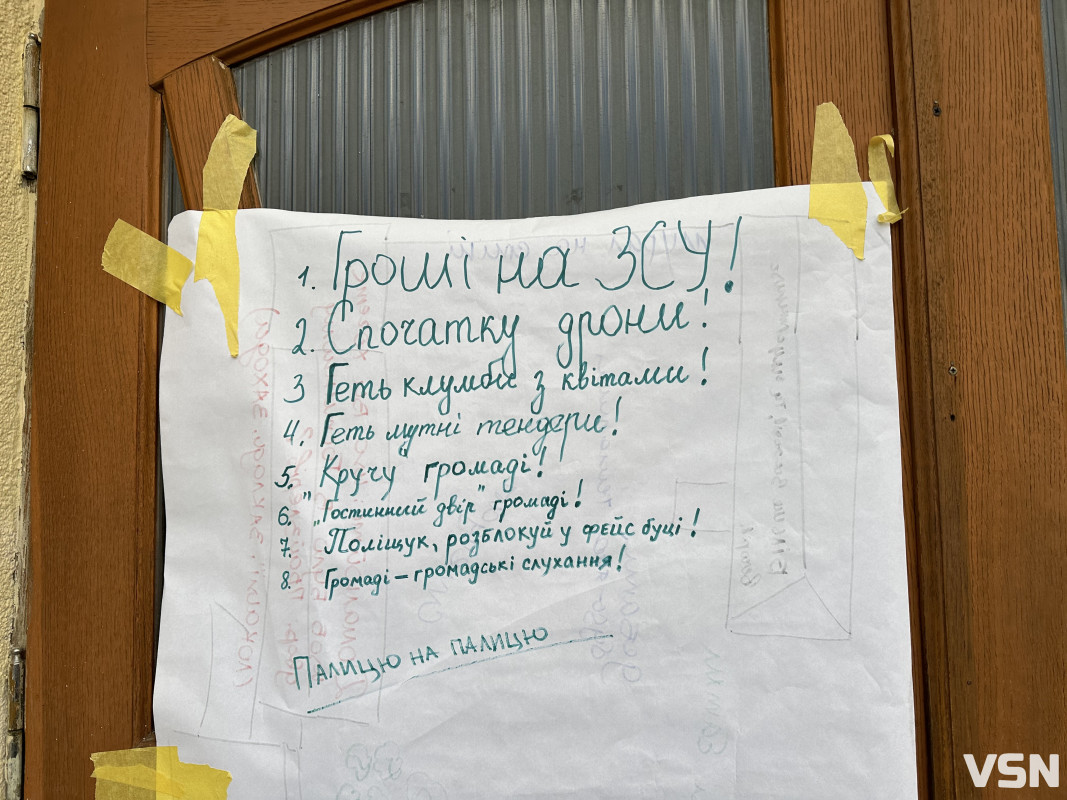 1. Гроші на ЗСУ!
2. Спочатку дрони!
3 Геть клумби з квітами!
4. Геть мутні тендери!
5. „Кручу" громаді!
6. „Гостинний двір" громаді!
7. Поліщук, розблокуй у фейс буці!
8. Громаді – громадські слухання!
Палицю на палицю
VSN